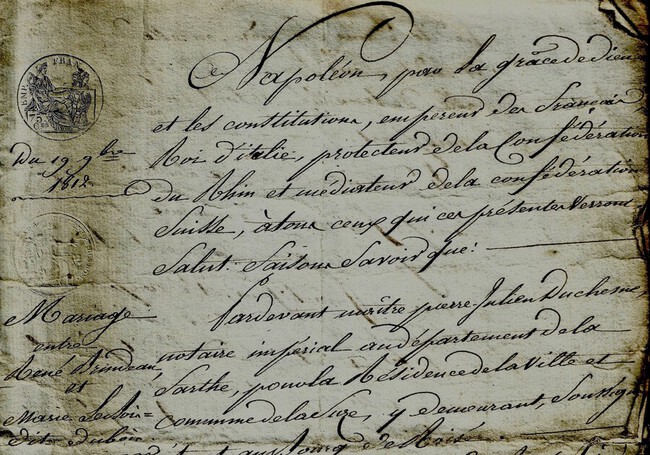 Napoléon, par la grâce de dieu
et les constitutions, empereur des français
Roi d'italie, protecteur de la Confédération
du Rhin et médiateur de la confédération
Suisse, à tous ceux qui ces présentes verront
Salut. Faisons Savoir que:
Du 19 9bre
1812
Mariage
entre
René
et
Marie
dit dubois
Pardevant maître pierre-Julien Duchesne,
notaire impérial au département de la
Sarthe, pour la Résidence de la Ville et
commune de la Suze, y demeurant, Soussigné